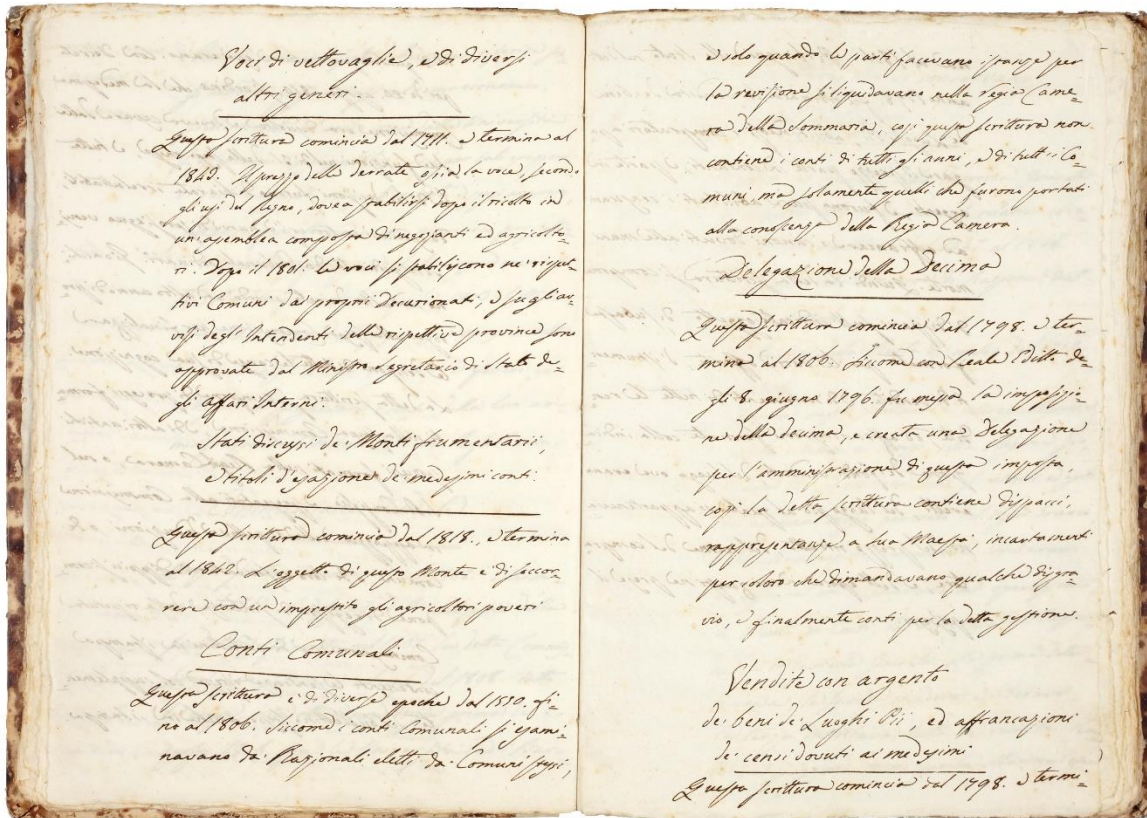 Voci di vettovaglie, e di diversi
altri generi.
Questa scrittura comincia dal 1711. e termina al
1842. Il prezzo delle derrate ossia la voce, secondo
gli usi del Regno, dovea stabilirsi dopo il ricolto in
un'assemblea composta di negozianti ed agricolto=
ri. Dopo il 1801. le voci si stabiliscono ne' rispet=
tivi Comuni dai proprii Decurionati, e sugli av=
visi degl'Intendenti delle rispettive province sono
approvate dal Ministro Segretario di Stato de=
gli affari Interni.
Stati discussi de' Monti frumentarii,
e titoli d'esazione de' medesimi conti.
Questa scrittura comincia dal 1818., e termina
al 1842. L'oggetto di questo Monte è di soccor=
rere con un imprestito gli agricoltori poveri
Conti Comunali
Questa scrittura è di diverse epoche dal 1550. fi=
no al 1806. Siccome i conti Comunali si esami=
navano da' Razionali eletti da' Comuni stessi,
e solo quando le parti facevano istanze per
la revisione si liquidavano nella regia Came=
ra della Sommaria, così questa scrittura non
contiene i conti di tutti gli anni, e di tutt'i Co=
muni, ma solamente quelli che furono portati
alla conoscenza della Regia Camera.
Delegazione della Decima
Questa scrittura comincia dal 1798. e ter=
mina al 1806. Siccome con Reale Editto de=
gli 8. giugno 1796. fu messa la imposizio=
ne della decima, e creata una Delegazione
per l'amministrazione di questa imposta,
così la detta scrittura contiene dispacci,
rappresentanze a Sua Maestà, incartamenti
per coloro che dimandavano qualche disgra=
vio, e finalmente conti per la detta gestione.
Vendite con argento
de' beni de' Luoghi Pii, ed affrancazioni
de' censi dovuti ai medesimi
Questa scrittura comincia dal 1798. e termi=